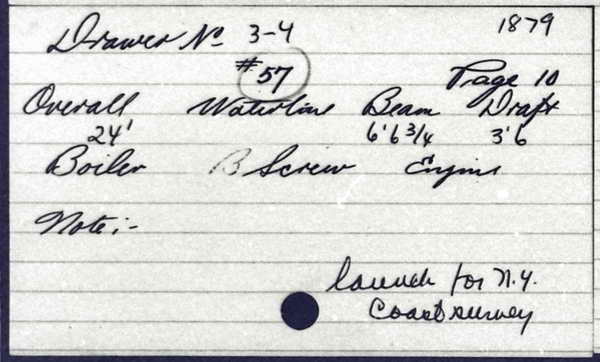 Drawer No 3-4 1879
#57
Page 10
Overall Waterline Beam Draft
24' 6'6 3/4 3'6
Boiler B Screw Engine
Note:-
launch for N.Y.
Coast survey